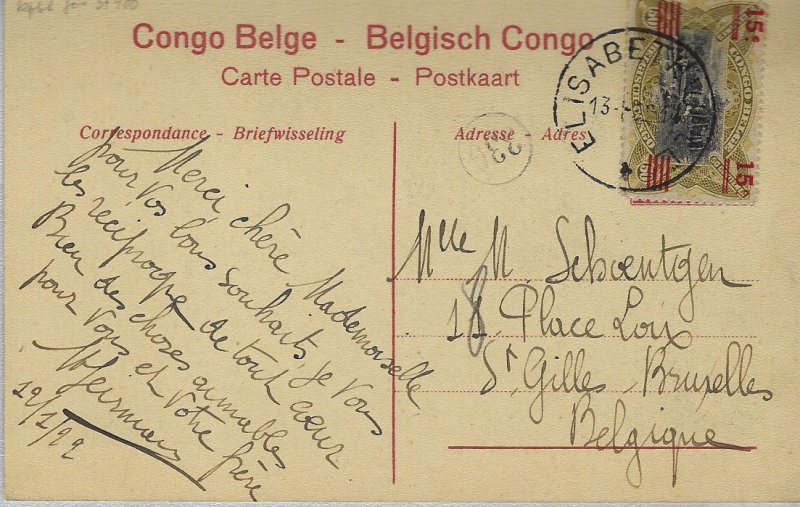 Congo Belge - Belgisch Congo
Carte Postale - Postkaart
Correspondance - Briefwisseling
Adresse - Adres
ELISABETH
13-
15c
15c
CONGO BELGE
23
Merci chère Mademoiselle
pour vos bons souhaits, je vous
les réciproque de tout coeur
Bien des choses aimables
pour vous et votre frère
12/1/22
Mlle M. Schoentgen
18 Place Loix
St Gilles - Bruxelles
Belgique